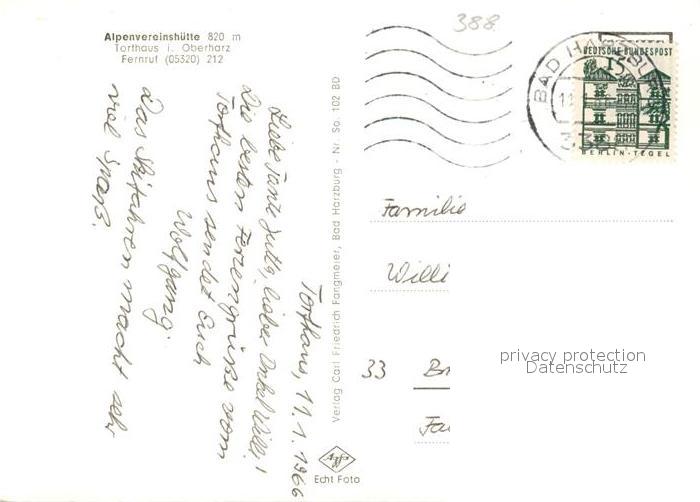 388
Alpenvereinshütte 820 m
Torthaus i. Oberharz
Fernruf (05320) 212
Torfhaus, 11.1.1966
Liebe Tante Jutta, lieber Onkel Willi!
Die besten Feriengrüsse vom
Torfhaus sendet Euch
Wolfgang.
Das Skifahren macht sehr
viel Spaß.
Verlag Carl Friedrich Fangmeier, Bad Harzburg - Nr. So. 102 BD
Echt Foto
DEUTSCHE BUNDESPOST
15
BERLIN-TEGEL
BAD HARZBU
Familie
Willi
33 Br
Fa
privacy protection
Datenschutz